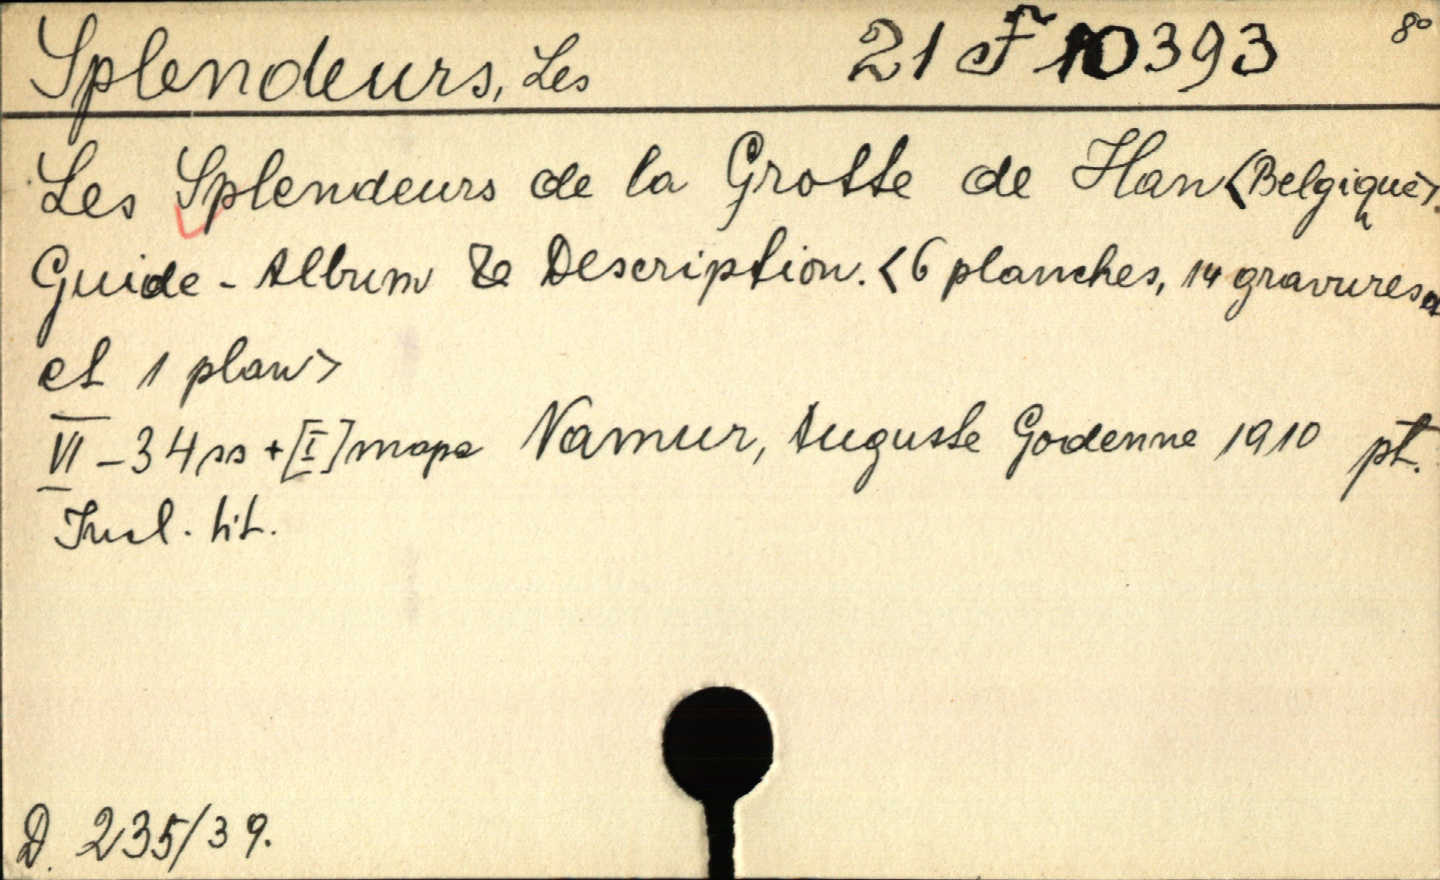 Splendeurs, Les 21 F 10393 8°
Les Splendeurs de la Grotte de Han <Belgique>.
Guide-Album & Description. <6 planches, 14 gravures
et 1 plan>
VI-34 ss + [I] mapa Namur, Auguste Godenne 1910 pł.
Ilust. tit.
D. 235/39.